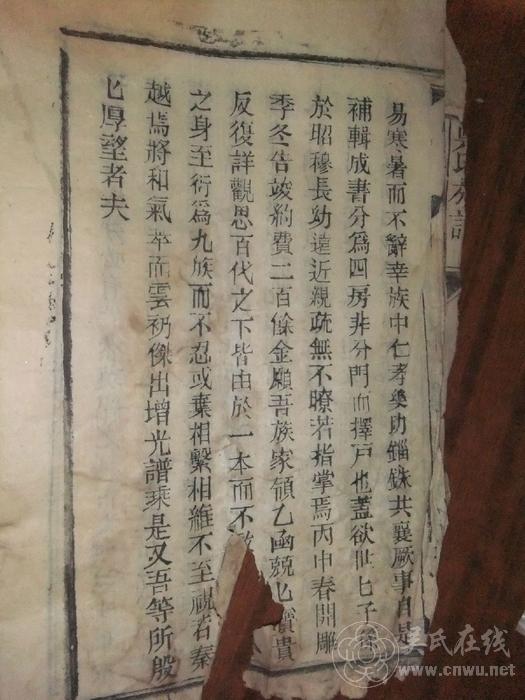 易寒暑而不辭幸族中仁孝樂助錙銖共襄厥事自是
補輯成書分爲四房非分門而擇戶也蓋欲世匕子孫
於昭穆長幼遠近親疏無不瞭若指掌焉丙申春開雕
季冬告竣約費二百餘金願吾族家領乙函兢匕寶貴
反復詳觀思百代之下皆由於一本而不
之身至衍爲九族而不忍或棄相繫相維不至視若秦
越焉將和氣萃而雲礽傑出增光譜乘是又吾等所殷
匕厚望者夫
吳氏族譜
吴氏在线
www.cnwu.net